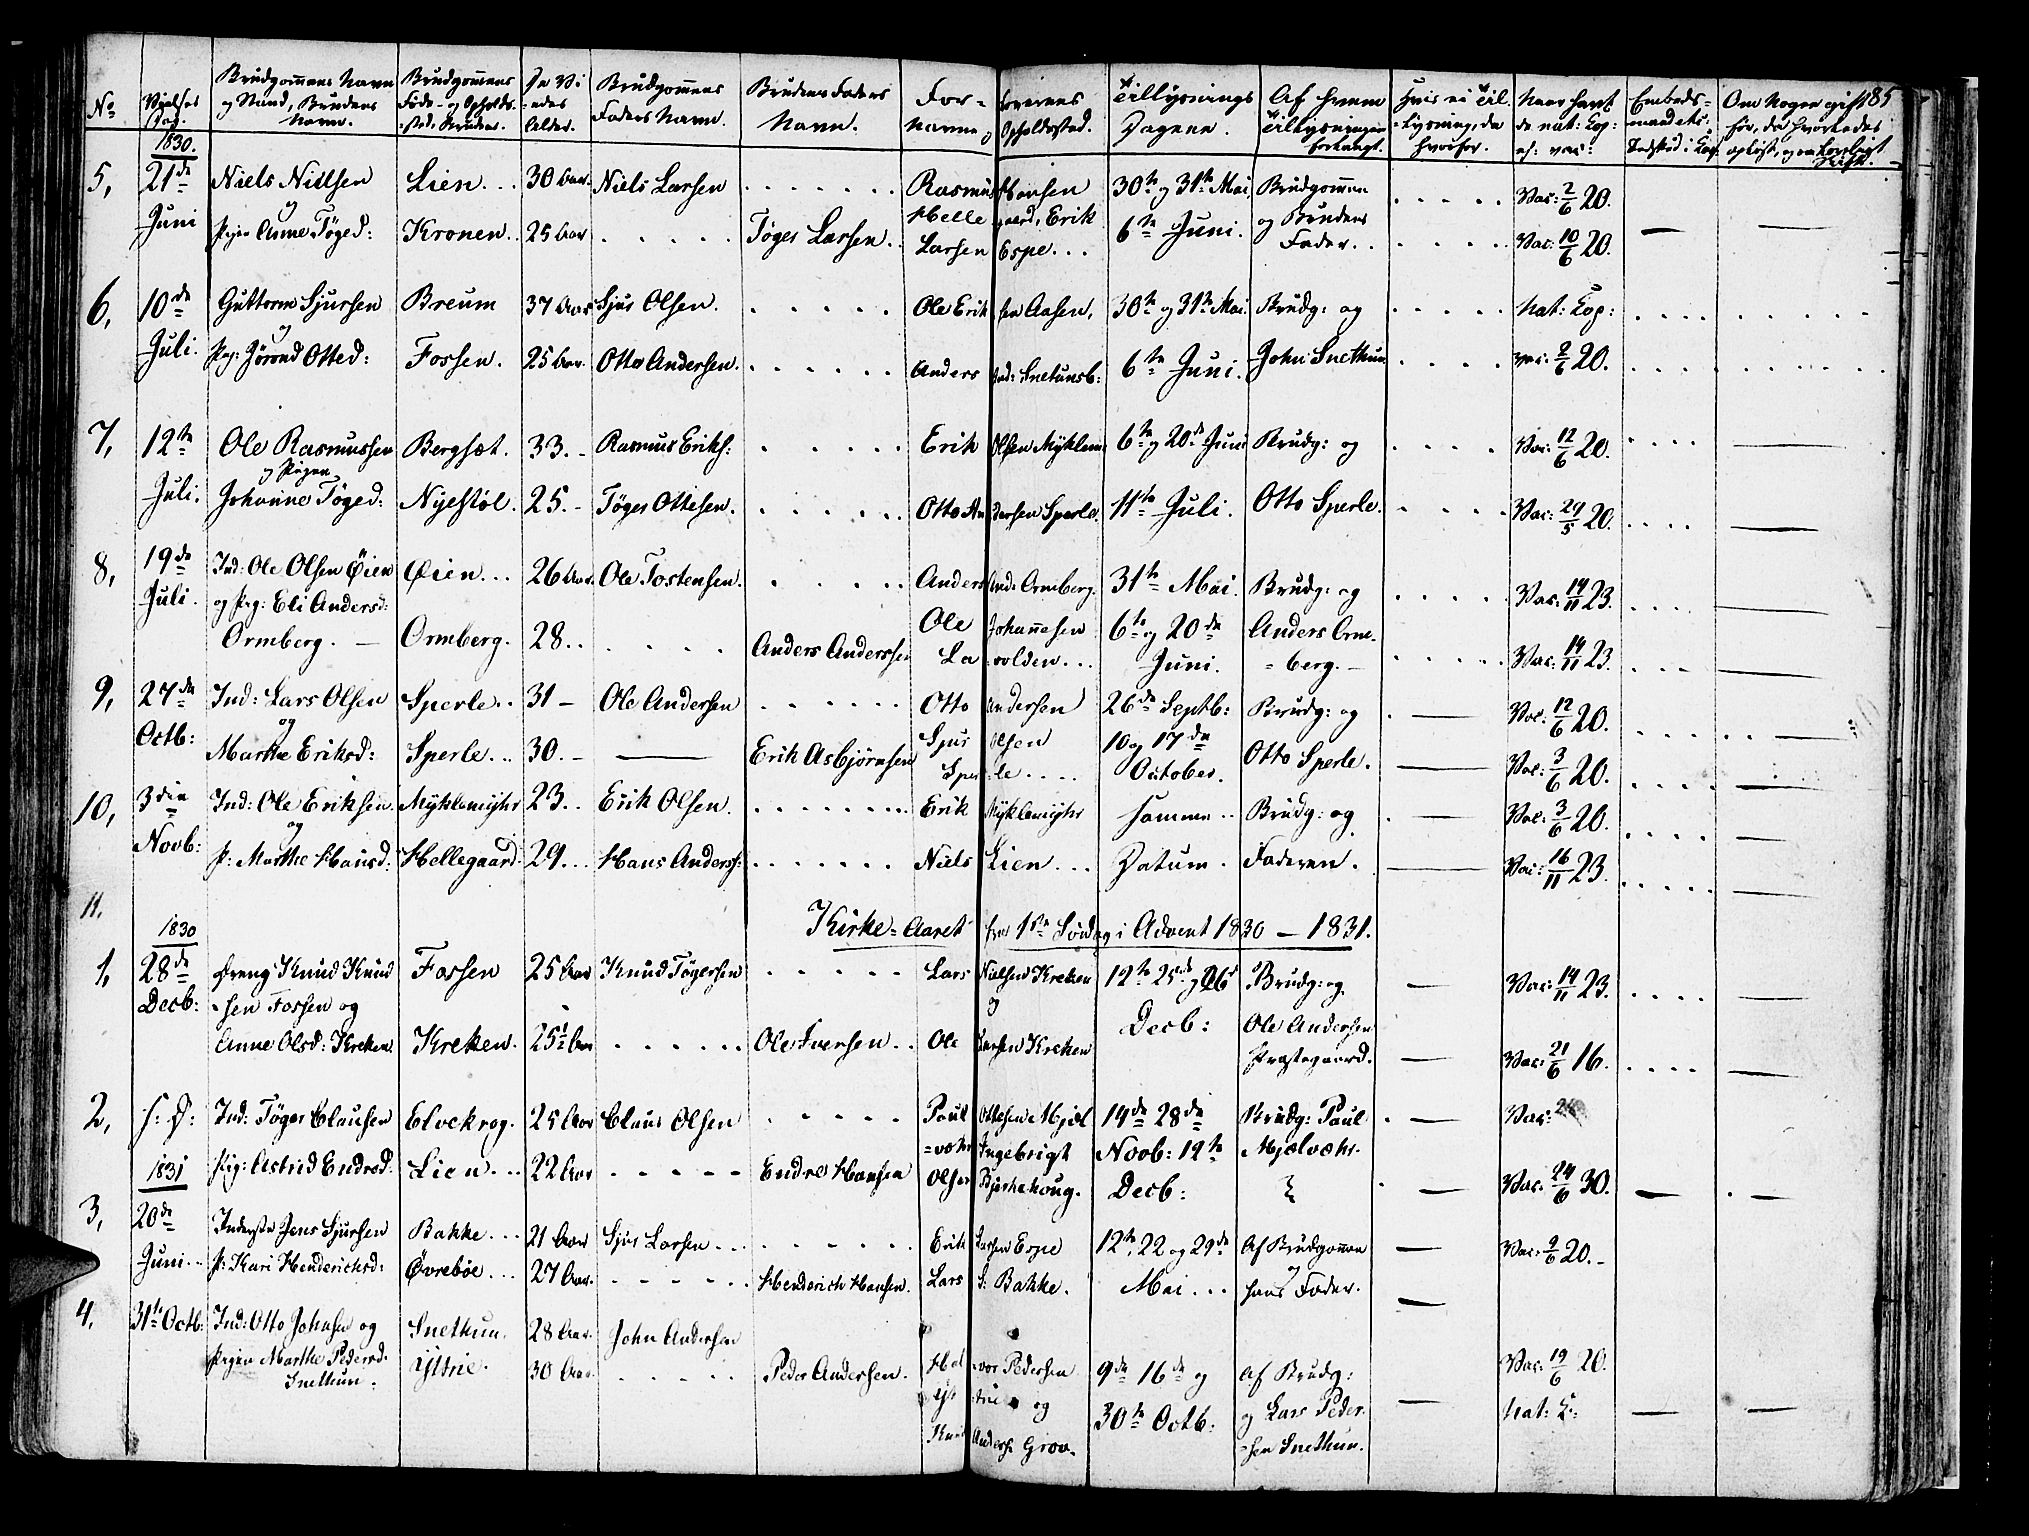 185
No
Vielses Dag.
Brudgommens Navn og Stand, Brudens Navn.
Brudgommens Føde- og Opholds-sted, Brudens.
De Vi-edes Alder.
Brudgommens Faders Navn.
Brudens Faders Navn.
For-lovernes Navne og Opholdssted.
Tillysnings Dagene.
Af hvem Tillysningen forlangt.
Hvis ei Til-lysning, da hvorfor.
Naar havt de nat: Kop: el: vac:
Om Nogen gift før, da hvorledes opløst, og om Lovligt Skift.
1830.
5, 21de Juni
Niels Nielsen Lien... 30 Aar Niels Larsen ....... Rasmus Hansen 30te og 31te Mai, Brudgommen ..... Vac: 2/6 20.
og
Pigen Anne Tøged: Kronen.. 25 Aar ..... Tøger Larsen.. Helle gaard, Erik Larsen Espe... 6te Juni. og Brudens Fader.. Vac: 10/6 20. — —
6, 10de Juli.
Guttorm Sjursen Breum 37 Aar Sjur Olsen. ..... Ole Erik sen Aasen, 30te og 31te Mai. Brudg: og ..... Nat: Kop:
og
Pig: Jørend Otted: Fossen. 25 Aar. Otto Andersen. ...... Anders And: Snetunsb: 6te Juni. John Snethun .... vac: 2/6 20.
7, 12te Juli.
Ole Rasmussen Bergsæt. 33.- Rasmus Eriks: ..... Erik Olsen Myklem 6te og 20de Juni Brudg: og .... Vac: 12/6 20.
og Pigen
Johanne Tøged: Nyestøl. 25.- Tøger Ottesen. ..... Otto An dersen Sperle, 11te Juli. Otto Sperle. .... Vac: 29/5 20.
8, 19de Juli.
Ind: Ole Olsen Øien Øien... 26 Aar. Ole Tostensen. ..... Anders And: Ormberg. 31te Mai. Brudg: og ..... Vac: 14/11 23.
og Pig: Eli Andersd: Ormberg. — Ormberg. 28.. ..... Anders Anderssen Ole Johannesen La volden... 6te og 20de Juni. Anders Orm-berg.- ..... Vac: 14/11 23.
9, 27de Octb:
Ind: Lars Olsen Sperle.. 31 - Ole Andersen ...... Otto Andersen 26de Septb: Brudg: og — Vac: 12/6 20.
og
Marthe Eriksd: Sperle... 30.- — Erik Asbjørnsen Sjur Olsen Sper-le.... 10 og 17de October. Otto Sperle. — Vac: 3/6 20.
10, 3die Novb:
Ind: Ole Eriksen Myklemyhr 23.. Erik Olsen. ....... Erik Myklemyhr samme.. Brudg: og — Vac: 3/6 20.
og
P: Marthe Hansd: Hellegaard. 29... Hans Anders: ...... Niels Lien... Datum. Faderen. — Vac: 16/11 23.
11.
Kirke-Aaret fra 1ste Søndag i Advent 1830 - 1831.
1830
1, 28de Decb:
Dreng Knud Knud-sen Fossen og Fossen 25 Aar Knud Tøgersen ..... Lars Nielsen Kreken og 12te 25de og 26d Decb: Brudg: og — Vac: 14/11 23.
Anne Olsd: Kreken Kreken. 25½ Aar ..... Ole Iversen.. Ole Larsen Kreken Ole Andersen Præstegaard. — Vac: 21/6 16.
2, s: D:
Ind: Tøger Clausen Elvekrog. 25 Aar Claus Olsen ..... Paul Ottesen Mjel-væhr 14de 28de Brudg: Paul — Vac:
Pig: Astrid Endresd: Lien... 22 Aar ..... Endre Hansen Ingebrigt Olsen Bjerkehoug. Novb: 12te Decb: Mjelvæhr. — Vac: 24/6 30. — —
1831
3, 20de Juni..
Inderste Jens Sjursen Bakke... 21 Aar Sjur Larsen... ...... Erik Larsen Espe 12te, 22 og 29de Af Brudgommen — Vac: 9/6 20.-
P: Kari Henderichsd: Øvrebøe... 27 Aar. ..... Henderich Hansen. Lars S. Bakke. Mai... og hans Fader. —
4, 31te Octb:
Ind: Otto Johnsen og Snethun. 28 Aar. John Andersen Hal-vor Pedersen 9de 16de og Af Brudg: Vac: 19/6 20.
Pigen Marthe Pedersd. Snethun. Ystrie. 30 Aar. ..... Peder Andersen. Ys-trie og Knud Anders: Grov. 30te Octb: og Lars Peder-sen Snethun. — Nat: K: — —